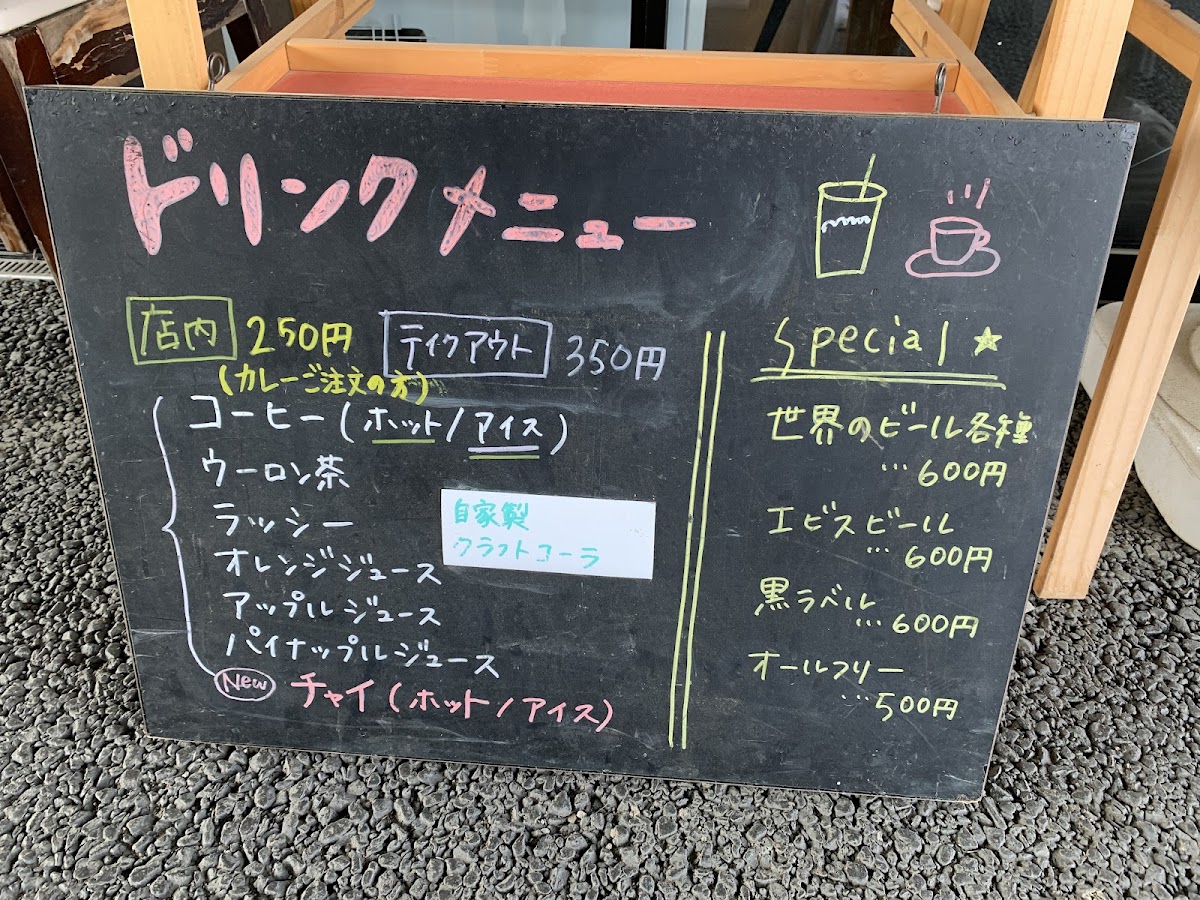 ドリンクメニュー
店内 250円 テイクアウト 350円
(カレーご注文の方)
コーヒー(ホット/アイス)
ウーロン茶
ラッシー
オレンジジュース
アップルジュース
パイナップルジュース
New チャイ(ホット/アイス)
自家製
クラフトコーラ
Special
世界のビール各種
…600円
エビスビール
…600円
黒ラベル
…600円
オールフリー
…500円